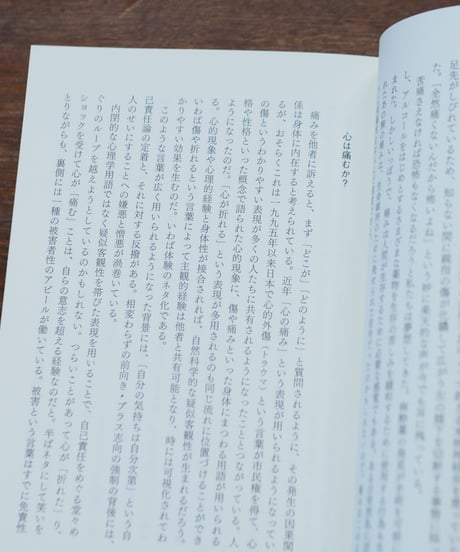 足先がしびれているため、知らない間に
た。「全然痛くないんだから怖いよね」という
苦痛さえなければ恐怖もなくなるだろう。私たちは夢想
し、アルコールをはじめとするさまざまな薬物を
まれた
心は痛むか？
痛みを他者に訴えると、まず「どこが」「どのように」と質問されるように、その発生の因果関
係は身体に内在すると考えられている。近年「心の痛み」という表現が用いられるようになってい
るが、おそらくこれは一九九五年以来日本で心的外傷（トラウマ）という言葉が市民権を得て、心
の傷というわかりやすい表現が多くの人たちに共有されるようになったこととつながっている。人
格や性格といった概念で語られた心的現象に、傷や痛みといった身体にまつわる用語が用いられる
ようになったのだ。「心が折れる」という表現が多用されるのも同じ流れに位置づけることができ
る。心的現象や心理的経験と身体性が接合されれば、自然科学的な疑似客観性が生まれるだろう。
いわば傷や折れるという言葉によって主観的経験は他者と共有可能となり、時には可視化されてわ
かりやすい効果を生むのだ。いわば体験のネタ化である。
このような言葉が広く用いられるようになった背景には、「自分の気持ちは自分次第」という自
己責任論の定着と、それに対する反撥がある。相変わらずの前向き・プラス志向の強制の背後には、
人のせいにすることへの嫌悪と憎悪が渦巻いている。
内閉的な心理学用語ではなく疑似客観性を帯びた表現を用いることで、自己責任をめぐる堂々め
ぐりのループを越えようとしているのかもしれない。つらいことがあって心が「折れた」り、
ショックを受けて心が「痛む」ことは、自らの意志を超える経験なのだと、半ばネタにして笑いを
とりながらも、裏側には一種の被害者性のアピールが働いている。被害という言葉はすでに免責性